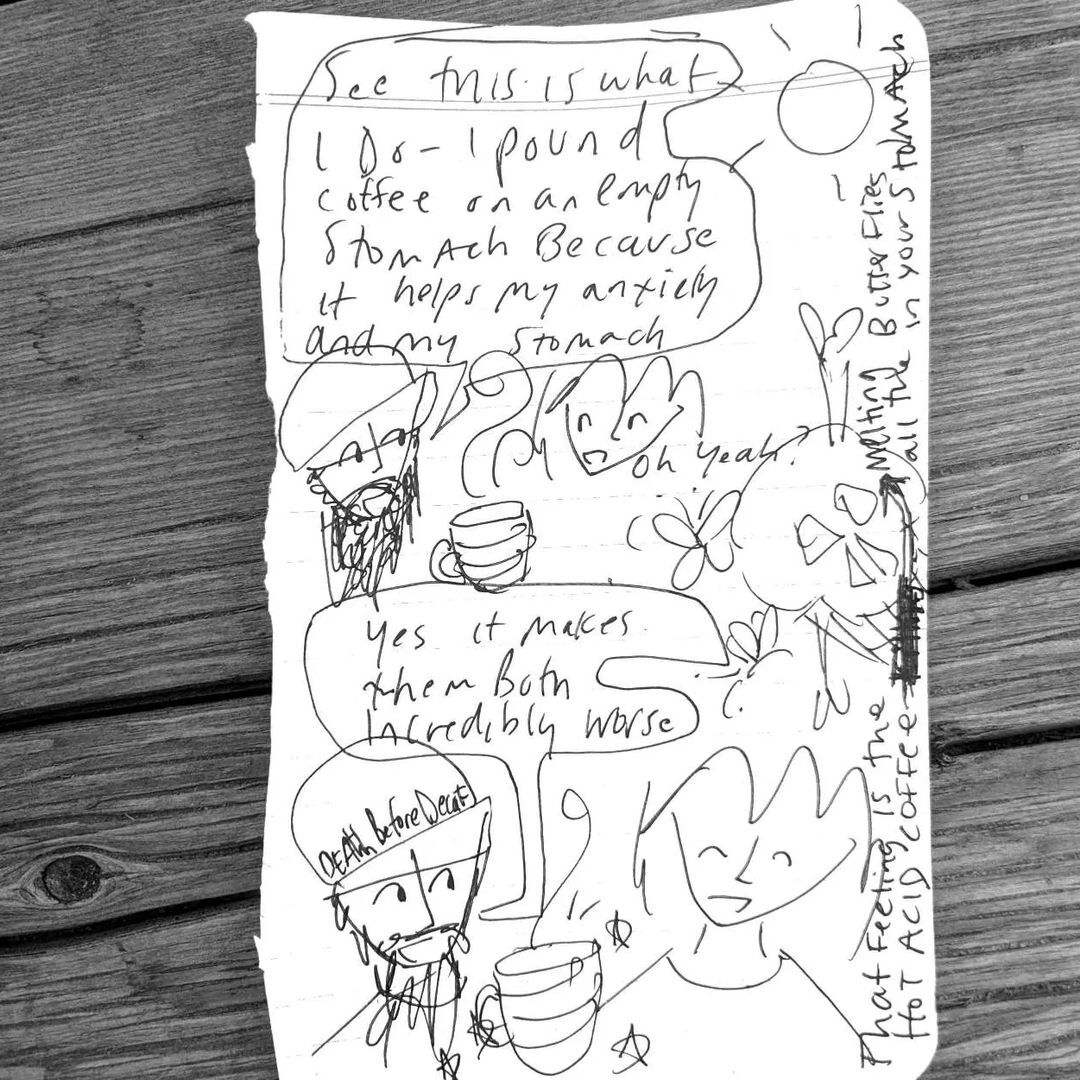 See this is what
I Do - I pound
coffee on an empty
Stomach Because
it helps my anxiety
and my Stomach
Oh Yeah?
Yes it makes
them Both
Incredibly worse
DEATH Before Decaf
That Feeling Is the
HOT ACID COFFEE
Melting Butterflies
all the in your Stomach